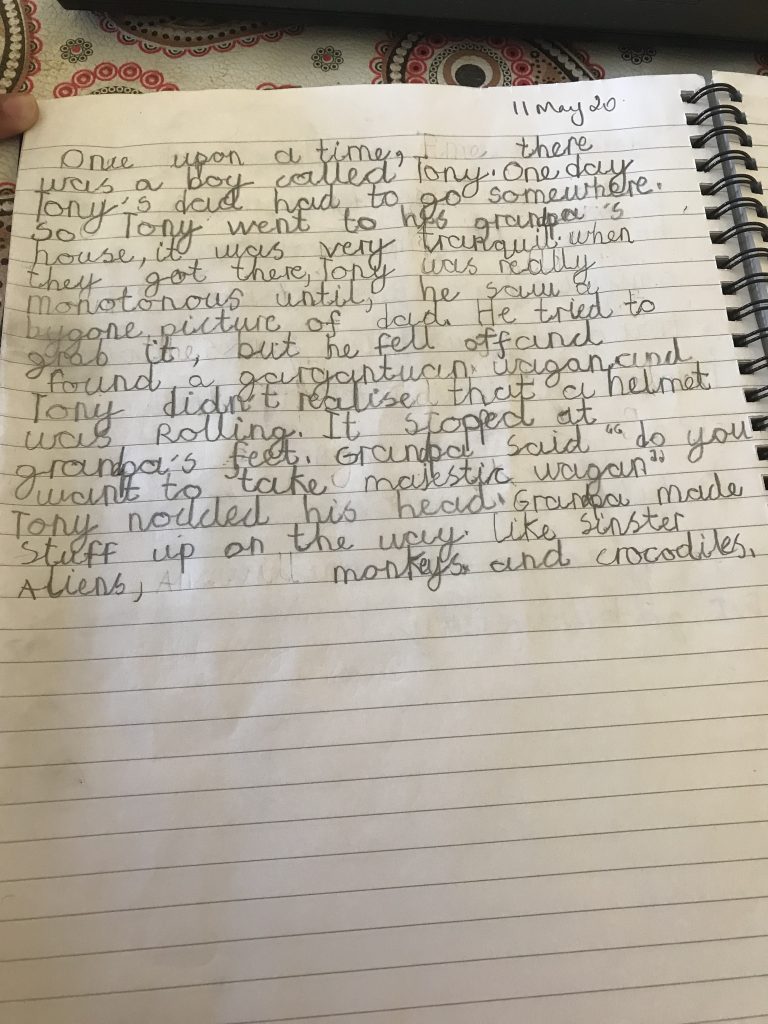 11 May 20
Once upon a time, there
was a boy called Tony. One day
Tony's dad had to go somewhere.
So Tony went to his grandpa's
house, it was very tranquil. when
they got there, Tony was really
monotonous until, he saw a
bygone picture of dad. He tried to
grab it, but he fell off and
found a gargantuan wagan, and
Tony didn't realise that a helmet
was Rolling. It stopped at
grandpa's feet. Grandpa said "do you
want to take majestic wagan"
Tony nodded his head. Grandpa made
stuff up on the way. like sinster
Aliens, monkeys and crocodiles.